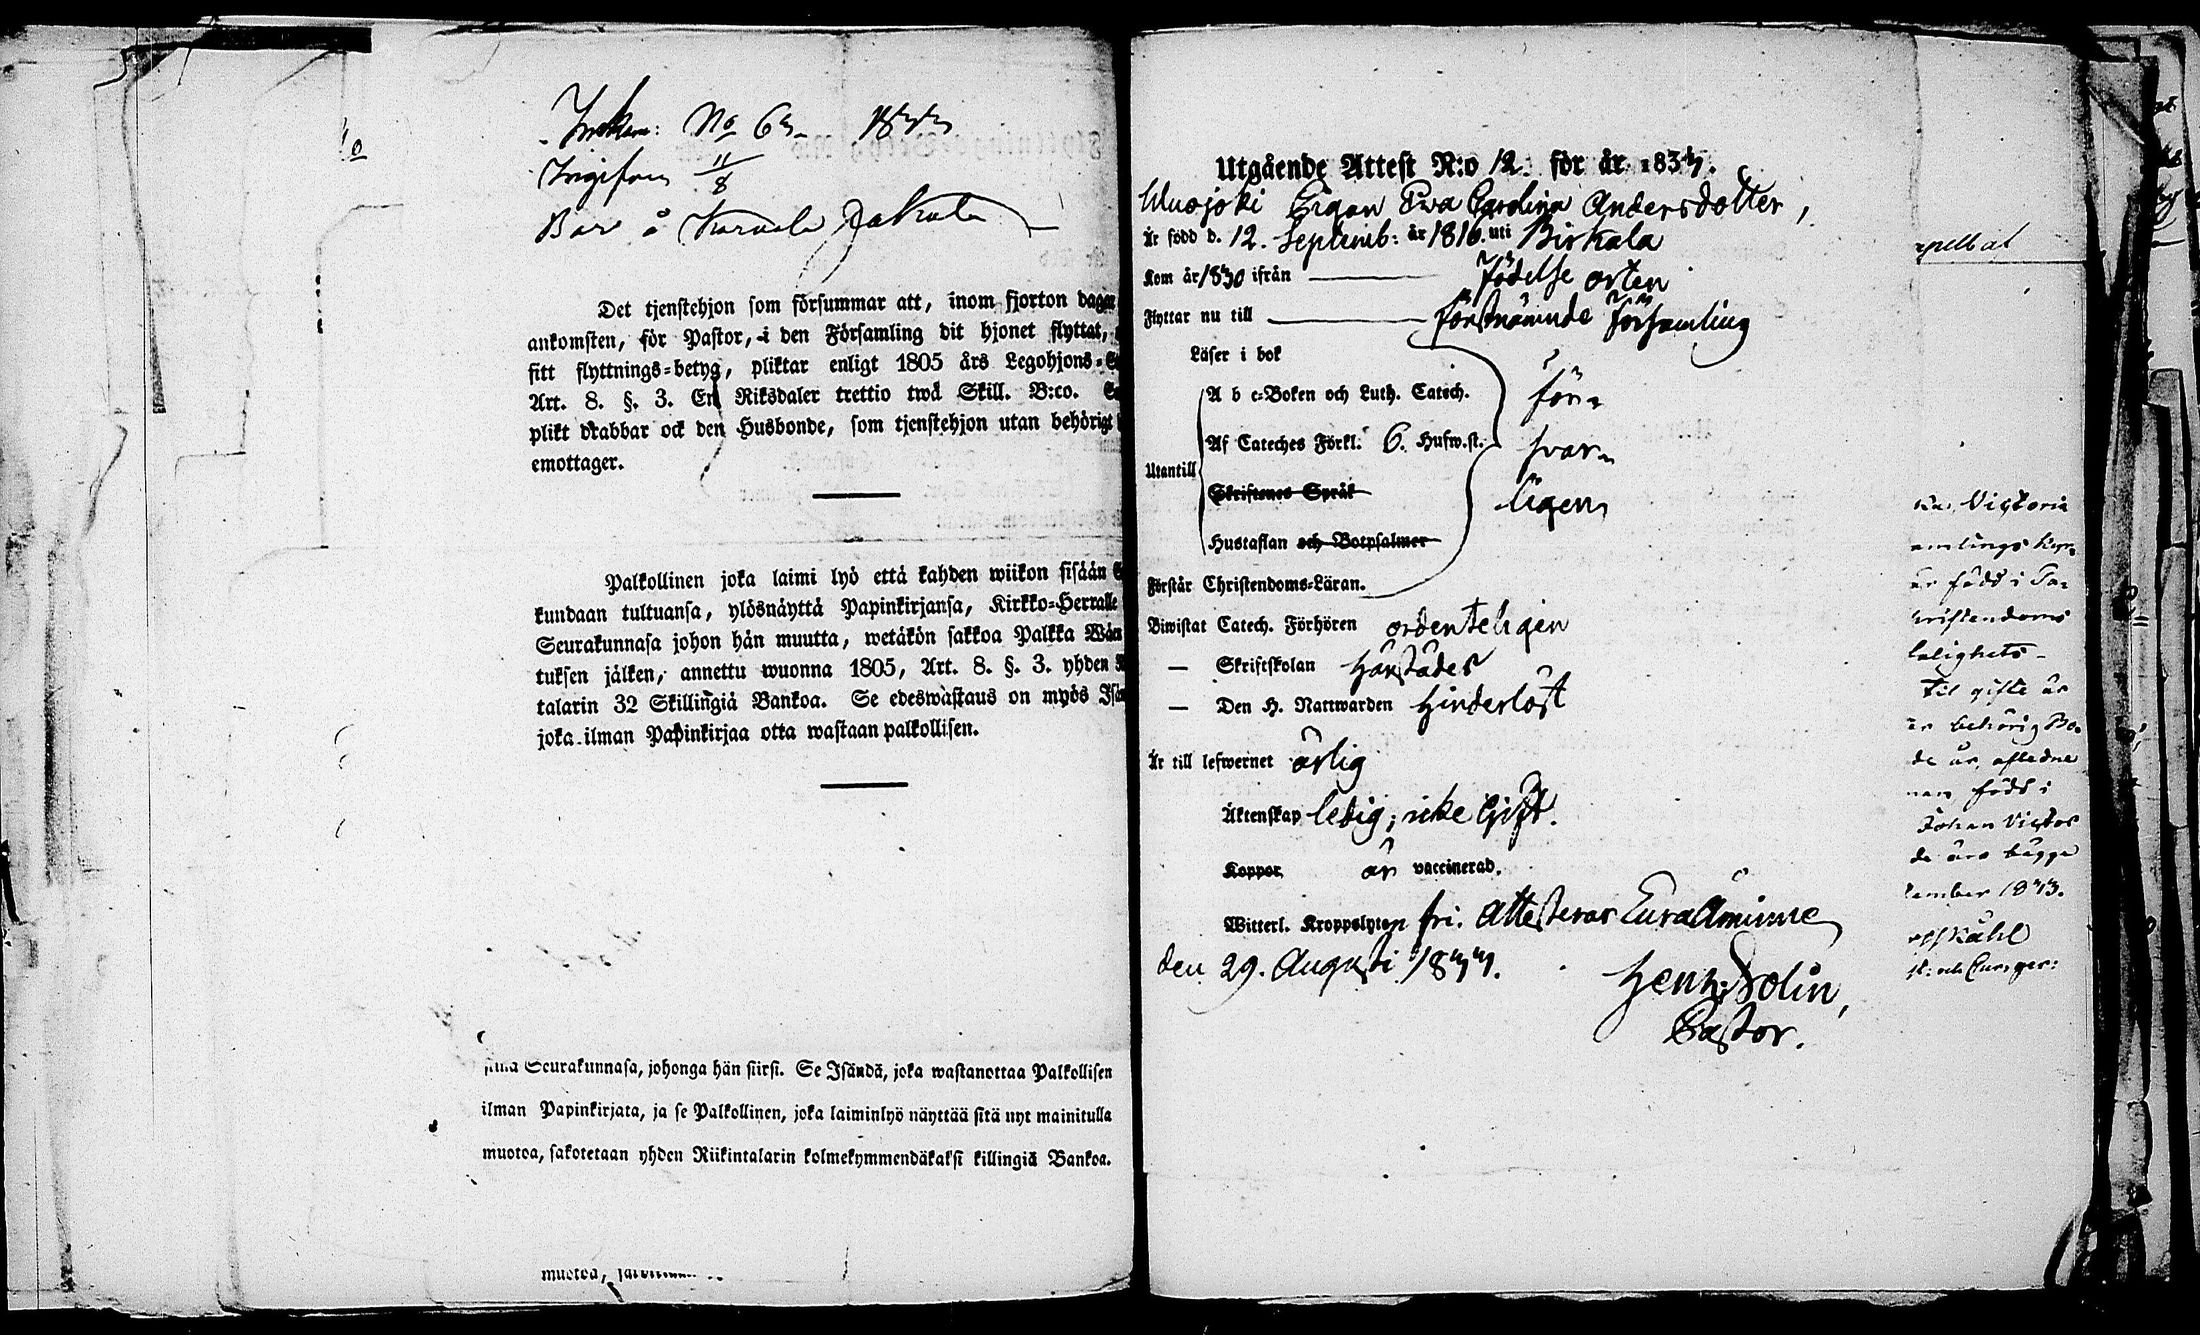 Inkom: No 63 1843
Ingifven 11/8
Bor å
Det tjenstehjon som försummar att, inom fjorton dagar
ankomsten, för Pastor, i den Församling dit hjonet flyttat,
sitt flyttnings-betyg, pliktar enligt 1805 års Legohjons-
Art. 8. §. 3. En Riksdaler trettio twå Skill. B:co.
plikt drabbar ock den Husbonde, som tjenstehjon utan behörigt
emottager.
Palkollinen joka laimi lyö että kahden wiikon sisään
kundaan tultuansa, ylösnäyttä Papinkirjansa, Kirkko-Herralle
Seurakunnasa johon hän muutta, wetäkön sakkoa Palkka
tuksen jälken, annettu wuonna 1805, Art. 8. §. 3. yhden
talarin 32 Skillingiä Bankoa. Se edeswastaus on myös
joka ilman Papinkirjaa otta wastaan palkollisen.
Seurakunnasa, johonga hän siirsi. Se Isändä, joka wastanottaa Palkollisen
ilman Papinkirjata, ja se Palkollinen, joka laiminlyö näyttää sitä nyt mainitulla
muotoa, sakotetaan yhden Riikintalarin kolmekymmendäkaksi killingiä Bankoa.
muotoa,
Utgående Attest N:o 12. för år 1834/4.
Pigan Ewa Carolina Andersdotter,
Är född d. 12. Septemb: år 1816. uti Birkala
Kom år 1830 ifrån Födelse orten
Flyttar nu till förstnämnde Församling
Läser i bok
A b c-Boken och Luth. Catech. för-
Af Cateches Förkl. 6. Hufw.st. svar-
Utantill
Skriftenes Språk ligen
Hustaflan och Botpsalmer
Förstår Christendoms-Läran.
Biwistat Catech. Förhören ordenteligen
— Skriftskolan härstädes
— Den H. Nattwarden hinderlöst
Är till lefwernet ärlig
Äktenskap ledig; icke Gift.
Koppor är vaccinerad.
Witterl. Kroppslyten fri. Attesterar Euraåminne
den 29. Augusti 1844.
Henr: Solin,
Pastor.
Victoria
amlings
är född i
hristendoms
lalighets-
til gifte är
är behörig
de är afledne
född i
Johan Victor
de äro bägge
tember 1843.